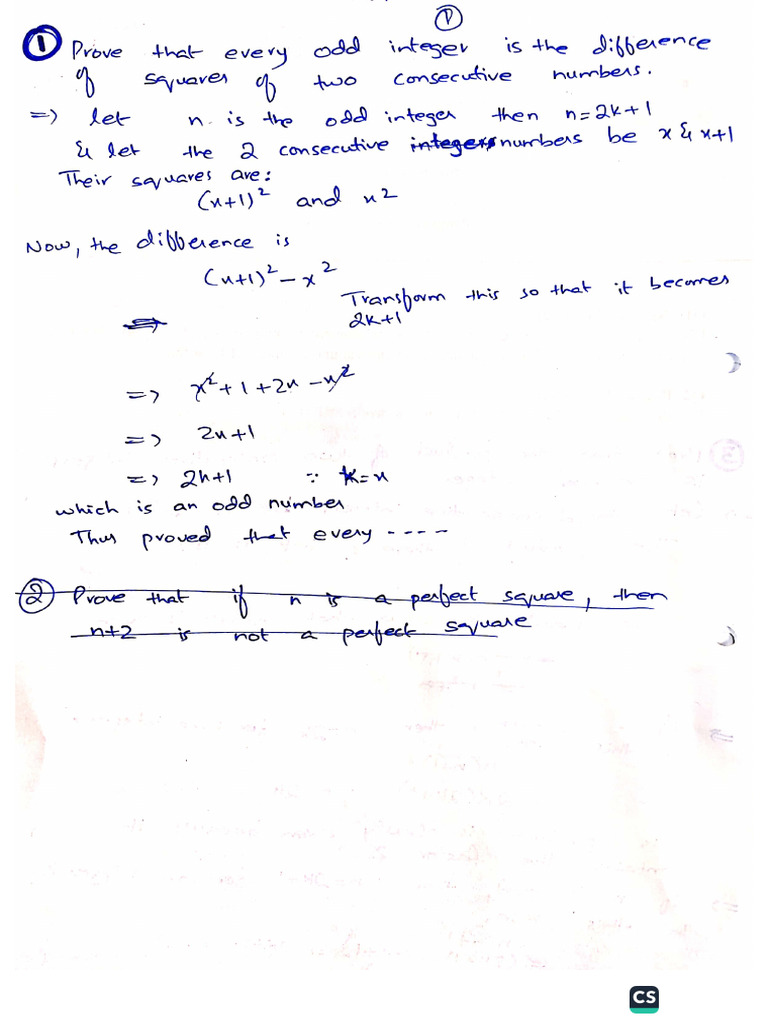 1
① Prove that every odd integer is the difference
of squares of two consecutive numbers.
=> let n is the odd integer then n=2k+1
& let the 2 consecutive integers numbers be x & x+1
Their squares are:
(x+1)² and x²
Now, the difference is
(x+1)² - x²
Transform this so that it becomes
2k+1
=>
=> x² + 1 + 2x - x²
=> 2x+1
=> 2k+1 ∵ k=x
which is an odd number
Thus proved that every ----
② Prove that if n is a perfect square, then
n+2 is not a perfect square
CS